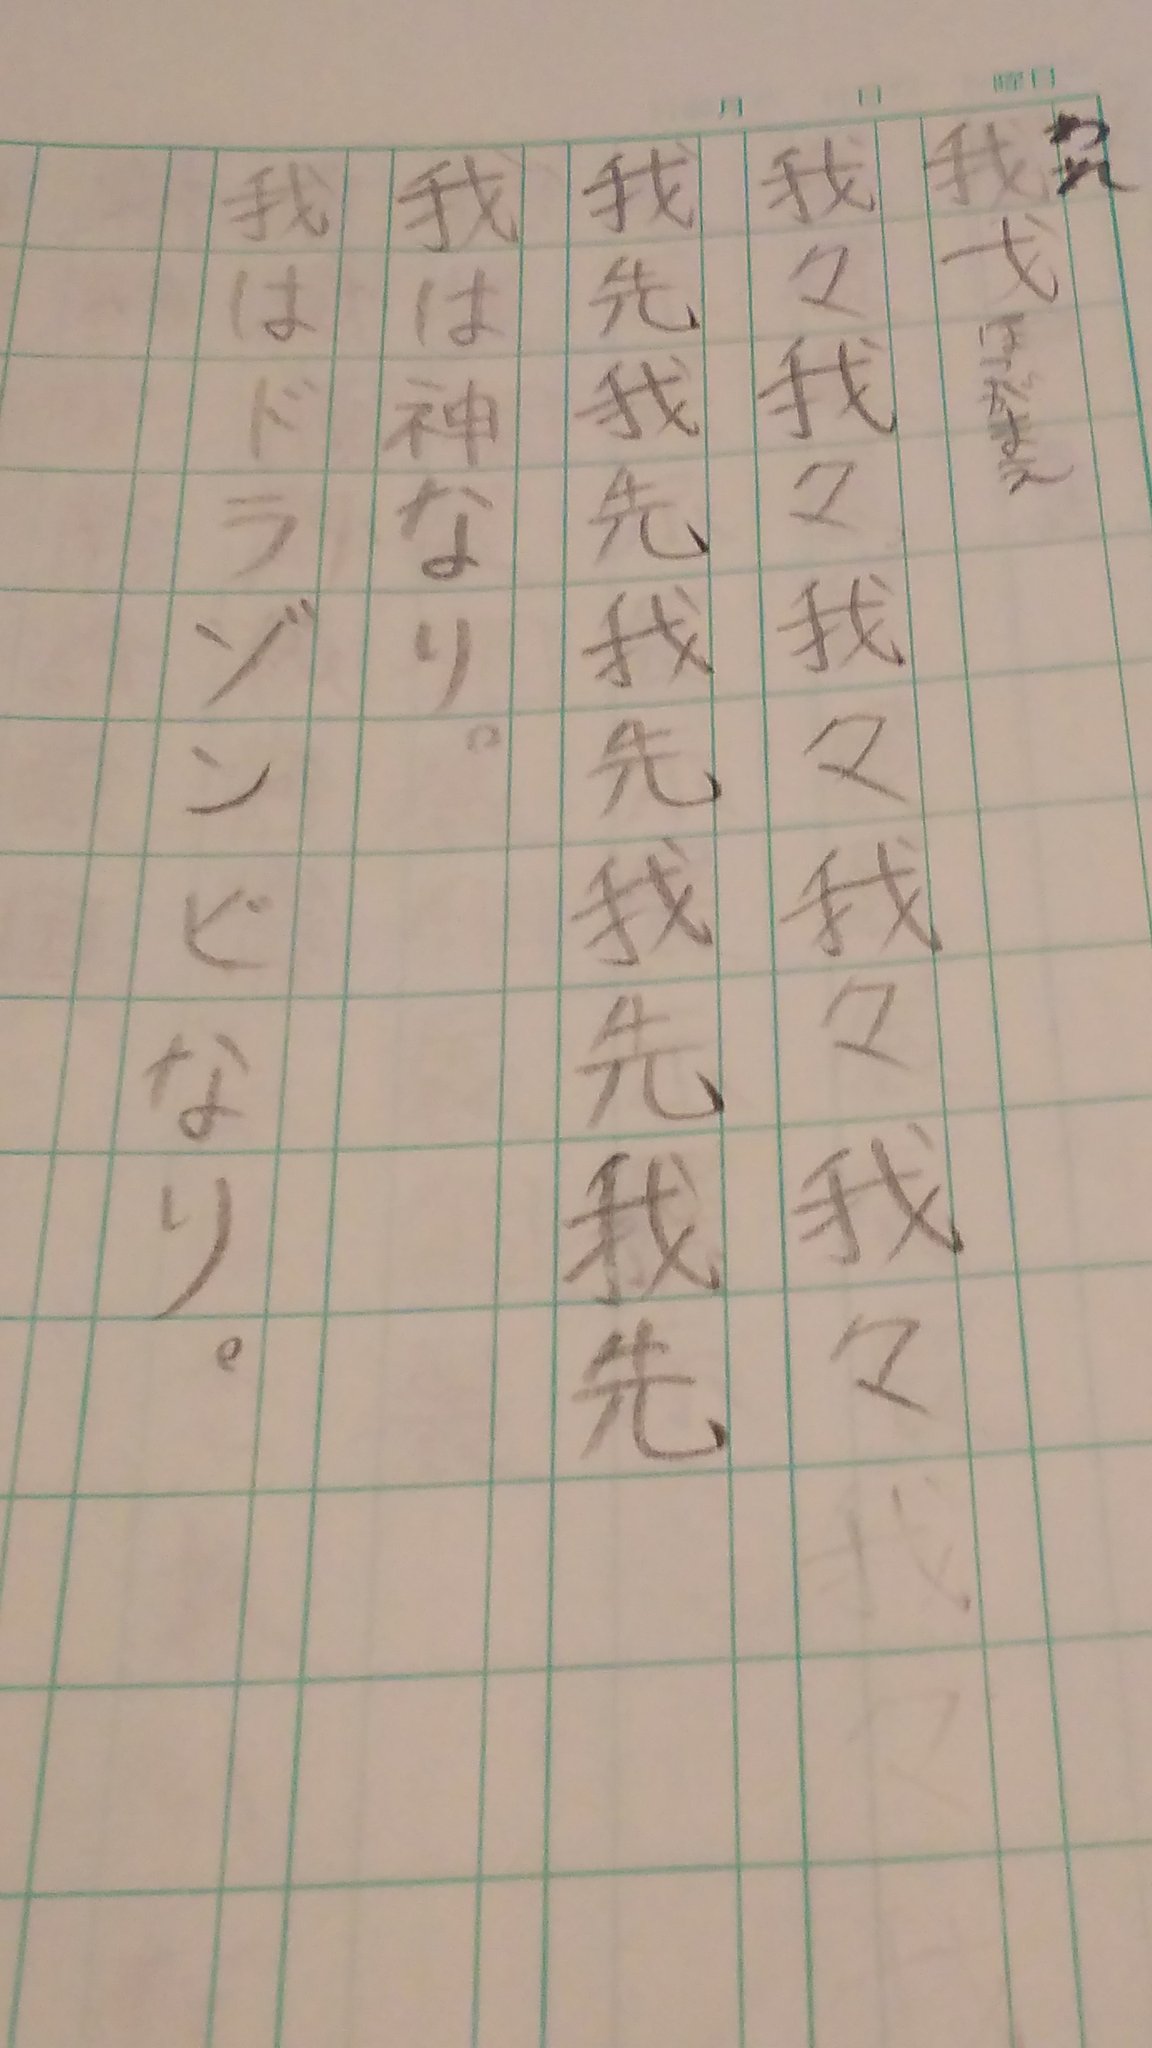 月 日 曜日
われ
我 弋 ほがまえ
我々我々我々我々我々我々
我先我先我先我先我先
我は神なり。
我はドラゾンビなり。